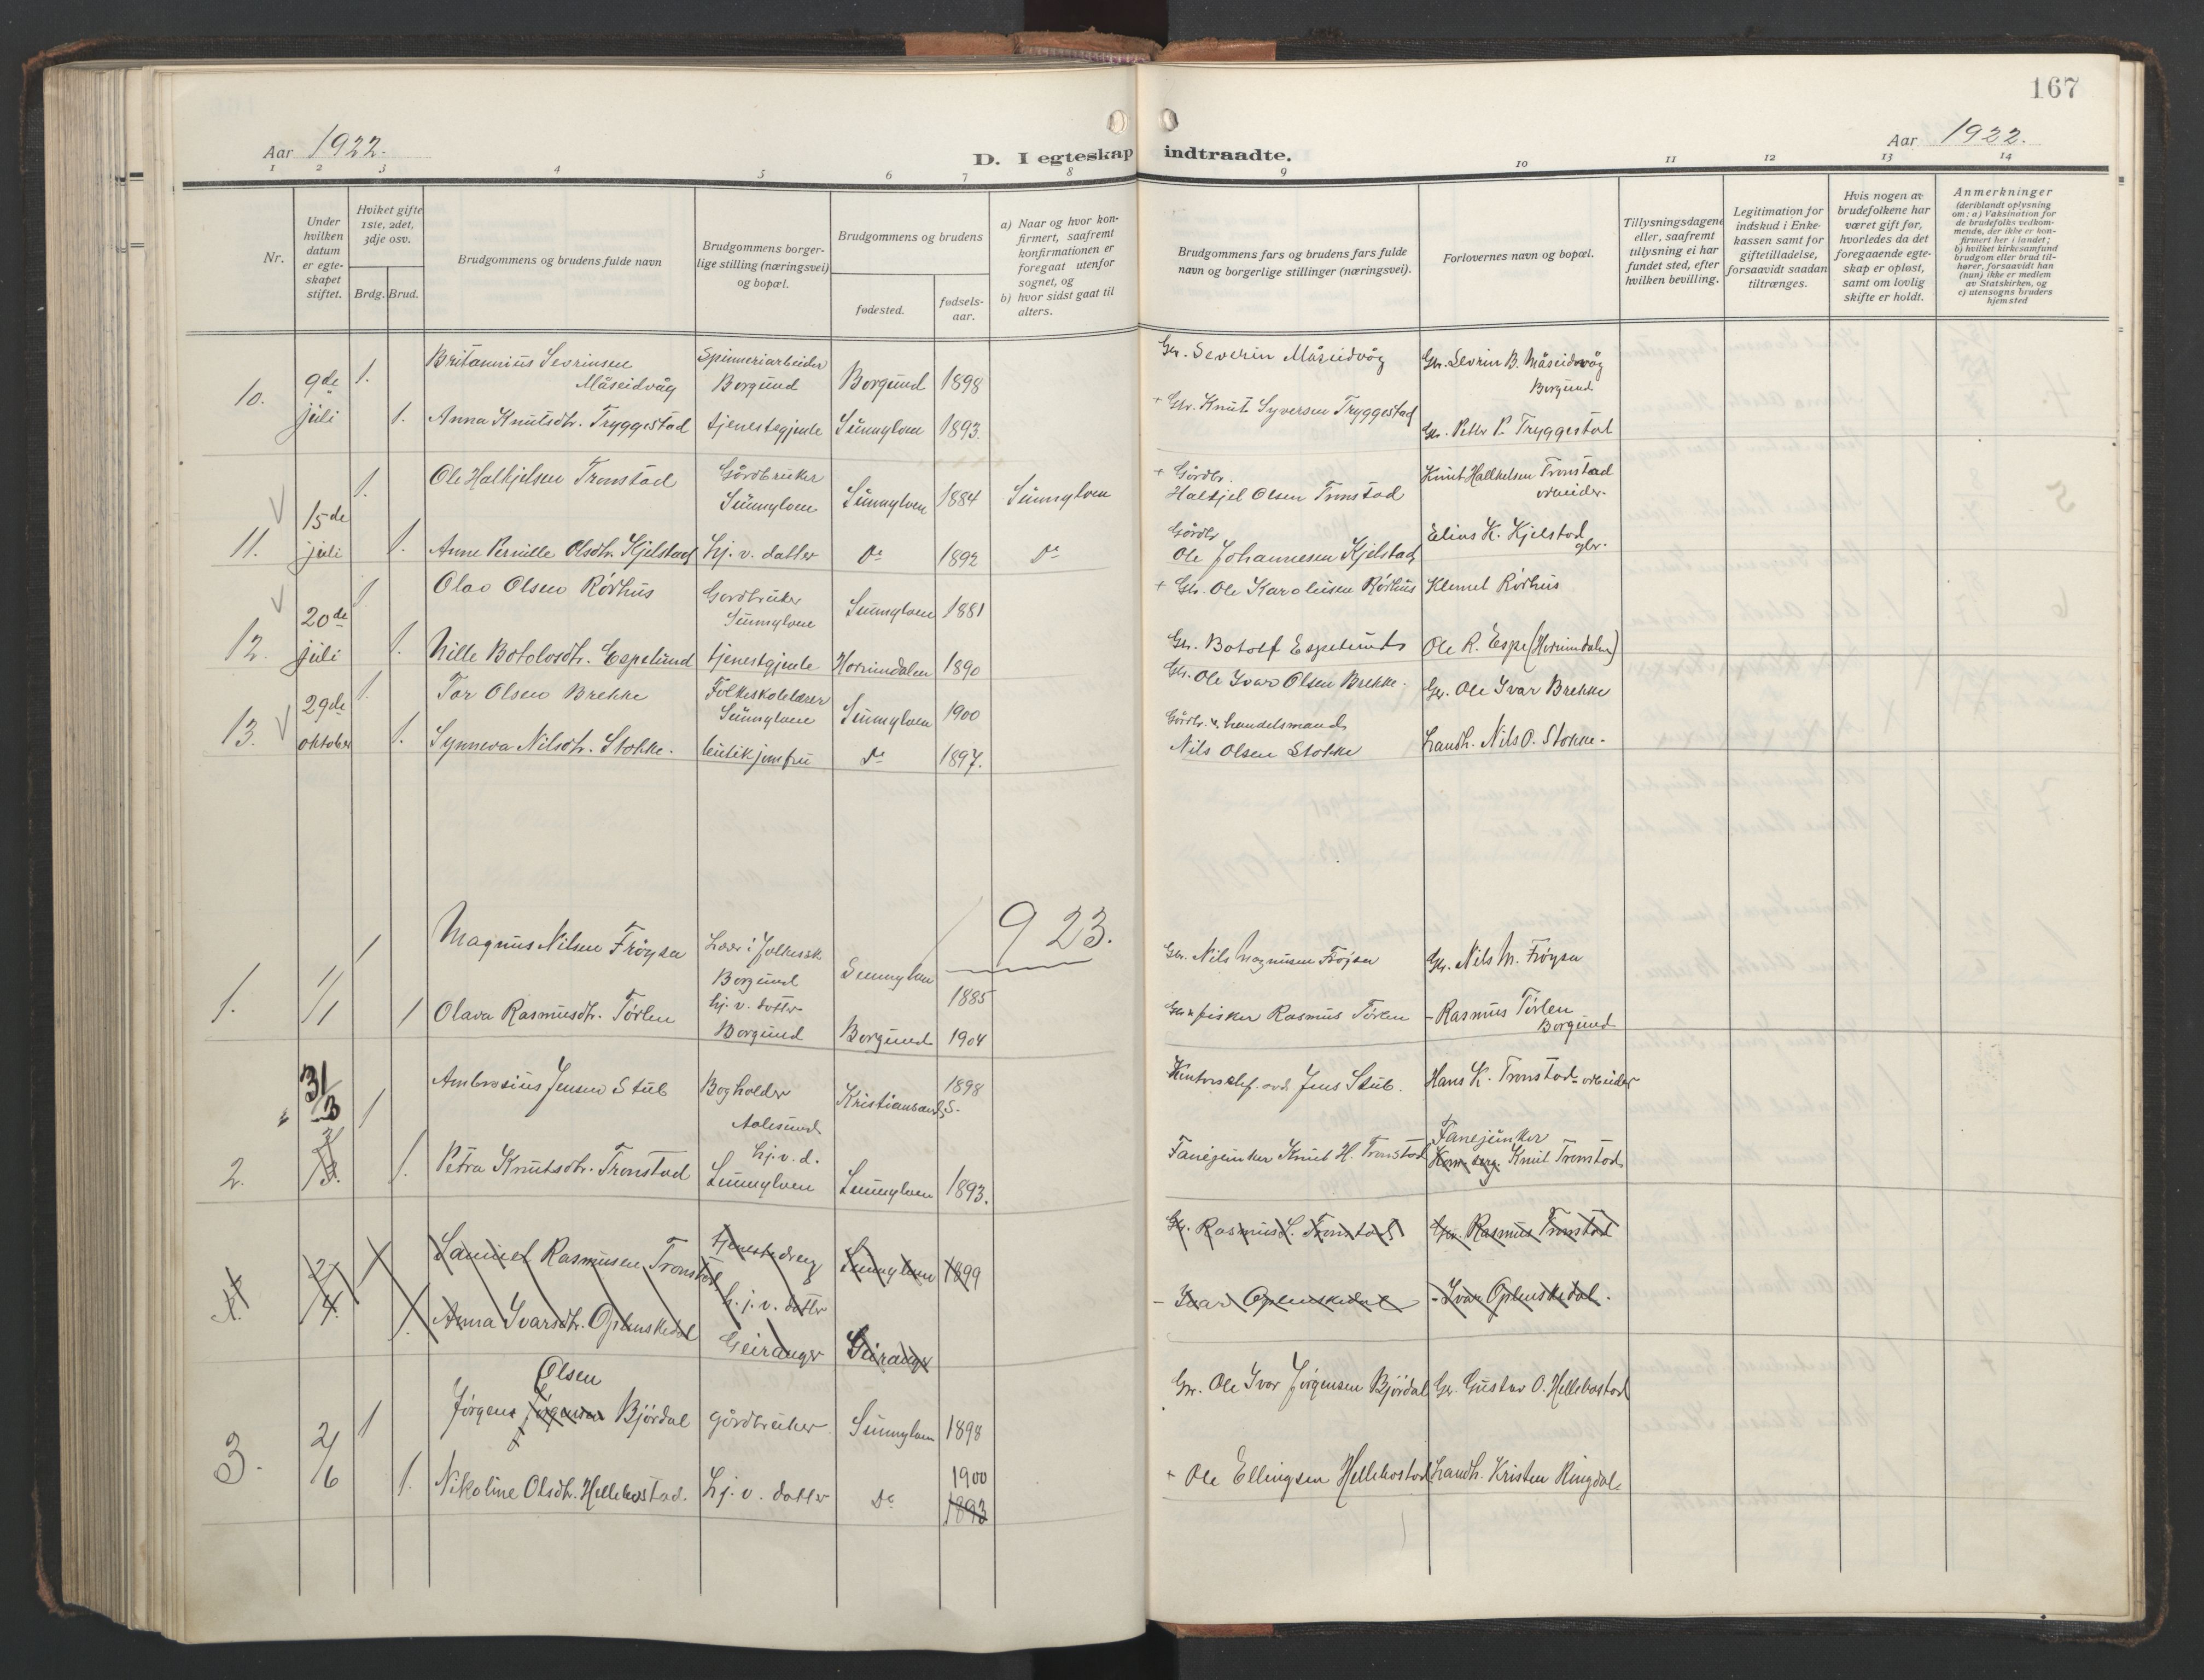 167
Aar 1922.
D. I egteskap indtraadte.
Aar 1922.
1 2 3 4 5 6 7 8 9 10 11 12 13 14
Nr.
Under
hvilken
datum
er egte-
skapet
stiftet.
Hviket gifte
1ste, 2det,
3dje osv.
Brdg. Brud.
Brudgommens og brudens fulde navn
Brudgommens borger-
lige stilling (næringsvei)
og bopæl.
Brudgommens og brudens
fødested.
fødsels-
aar.
a) Naar og hvor kon-
firmert, saafremt
konfirmationen er
foregaat utenfor
sognet, og
b) hvor sidst gaat til
alters.
Brudgommens fars og brudens fars fulde
navn og borgerlige stillinger (næringsvei).
Forlovernes navn og bopæl.
Tillysningsdagene
eller, saafremt
tillysning ei har
fundet sted, efter
hvilken bevilling.
Legitimation for
indskud i Enke-
kassen samt for
giftetilladelse,
forsaavidt saadan
tiltrænges.
Hvis nogen av
brudefolkene har
været gift før,
hvorledes da det
foregaaende egte-
skap er opløst,
samt om lovlig
skifte er holdt.
Anmerkninger
(deriblandt oplysning
om: a) Vaksination for
de brudefolks vedkom-
mende, der ikke er kon-
firmert her i landet;
b) hvilket kirkesamfund
brudgom eller brud til-
hører, forsaavidt han
(hun) ikke er medlem
av Statskirken, og
c) utensogns bruders
hjemsted
10. 9de juli
1. Britannius Sevrinsen Måseidvåg Spinneriarbeider Borgund Borgund 1898 Gbr. Severin Måseidvåg Gbr. Sevrin B. Måseidvåg Borgund
1. Anna Knutsdtr. Tryggestad tjenestegjente Sunnylven 1893. + Gbr. Knut Syversen Tryggestad Gbr. Petter P. Tryggestad
11. 15de juli
1. Ole Halkjelsen Tronstad Gårdbruker Sunnylven Sunnylven 1884 Sunnylven + Gårdbr. Halkjel Olsen Tronstad Knut Halkelsen Tronstad arbeider.
1. Anne Pernille Olsdtr. Kjelstad hj. v. datter Do 1892 Do Gårdbr Ole Johannesen Kjelstad Elias K. Kjelstad gbr.
12. 20de juli
1. Olav Olsen Rödhus Gardbruker Sunnylven Sunnylven 1881 + Gbr. Ole Karolusen Rödhus Klemet Rödhus
1. Nille Botolvsdtr. Espelund tjenestgjente Hornindalen 1890 Gbr. Botolf Espelund Ole R. Espe (Hornindalen)
13. 29de oktober
1. Tor Olsen Brekke Folkeskolelærer Sunnylven Sunnylven 1900 Gbr. Ole Ivar Olsen Brekke. Gbr. Ole Ivar Brekke
1. Synneva Nilsdtr. Stokke. butikjomfru Do 1897. Gårdbr. & handelsmand Nils Olsen Stokke Landh. Nils O. Stokke.
923.
1. 1/1
1 Magnus Nilsen Fröysa Lærer i folkesk Borgund Sunnylven 1885 Gbr. Nils Magnusen Fröysa Gbr. Nils M. Fröysa
1 Olava Rasmusdtr. Törlen hj. v. datter Borgund Borgund 1904 Gbr & fisker Rasmus Törlen - Rasmus Törlen Borgund
2. 31/3
1 Ambrosius Jensen Stub Bogholder Aalesund Kristiansand S. 1898 Jens Stub. Hans K. Tronstad - arbeider
1. Petra Knutsdtr. Tronstad hj. v. d. Sunnylven Sunnylven 1893. Fanejunker Knut H. Tronstad Fanejunker Knut Tronstad
2/4
1 Samuel Rasmusen Tronstad tjenestedreng Sunnylven 1899 Gbr. Rasmus S. Tronstad Gbr. Rasmus Tronstad
1. Anna Ivarsdtr. Oplenskedal h. j. v. datter Geiranger Geiranger - Ivar Oplenskedal - Ivar Oplenskedal.
3. 2/6
1 Jörgen Jörgensen Olsen Björdal gårdbruker Sunnylven 1898 Gbr. Ole Ivar Jörgensen Björdal Gbr. Gustav O. Hellebostad
1. Nikoline Olsdtr. Hellebostad. hj. v. datter Do 1900 1893 + Ole Ellingsen Hellebostad Landh. Kristen Ringdal